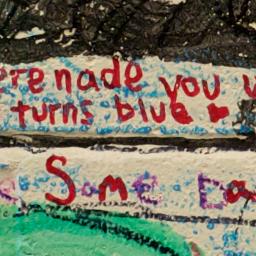 erenade you
turns blue
Some